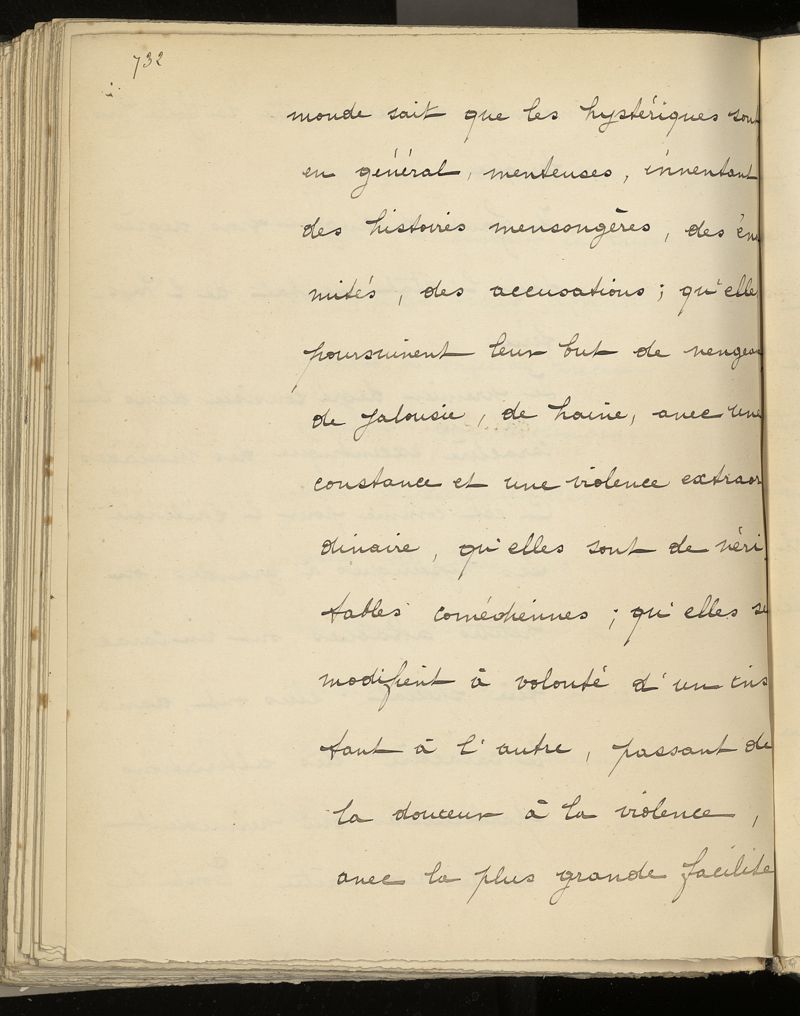 732
monde sait que les hystériques sont
en général, menteuses, inventant
des histoires mensongères, des éno
mités, des accusations ; qu'elles
poursuivent leur but de vengean
de jalousie, de haine, avec une
constance et une violence extraor
dinaire, qu'elles sont de véri
tables comédiennes ; qu'elles se
modifient à volonté d'un ins
tant à l'autre, passant de
la douceur à la violence,
avec la plus grande facilité